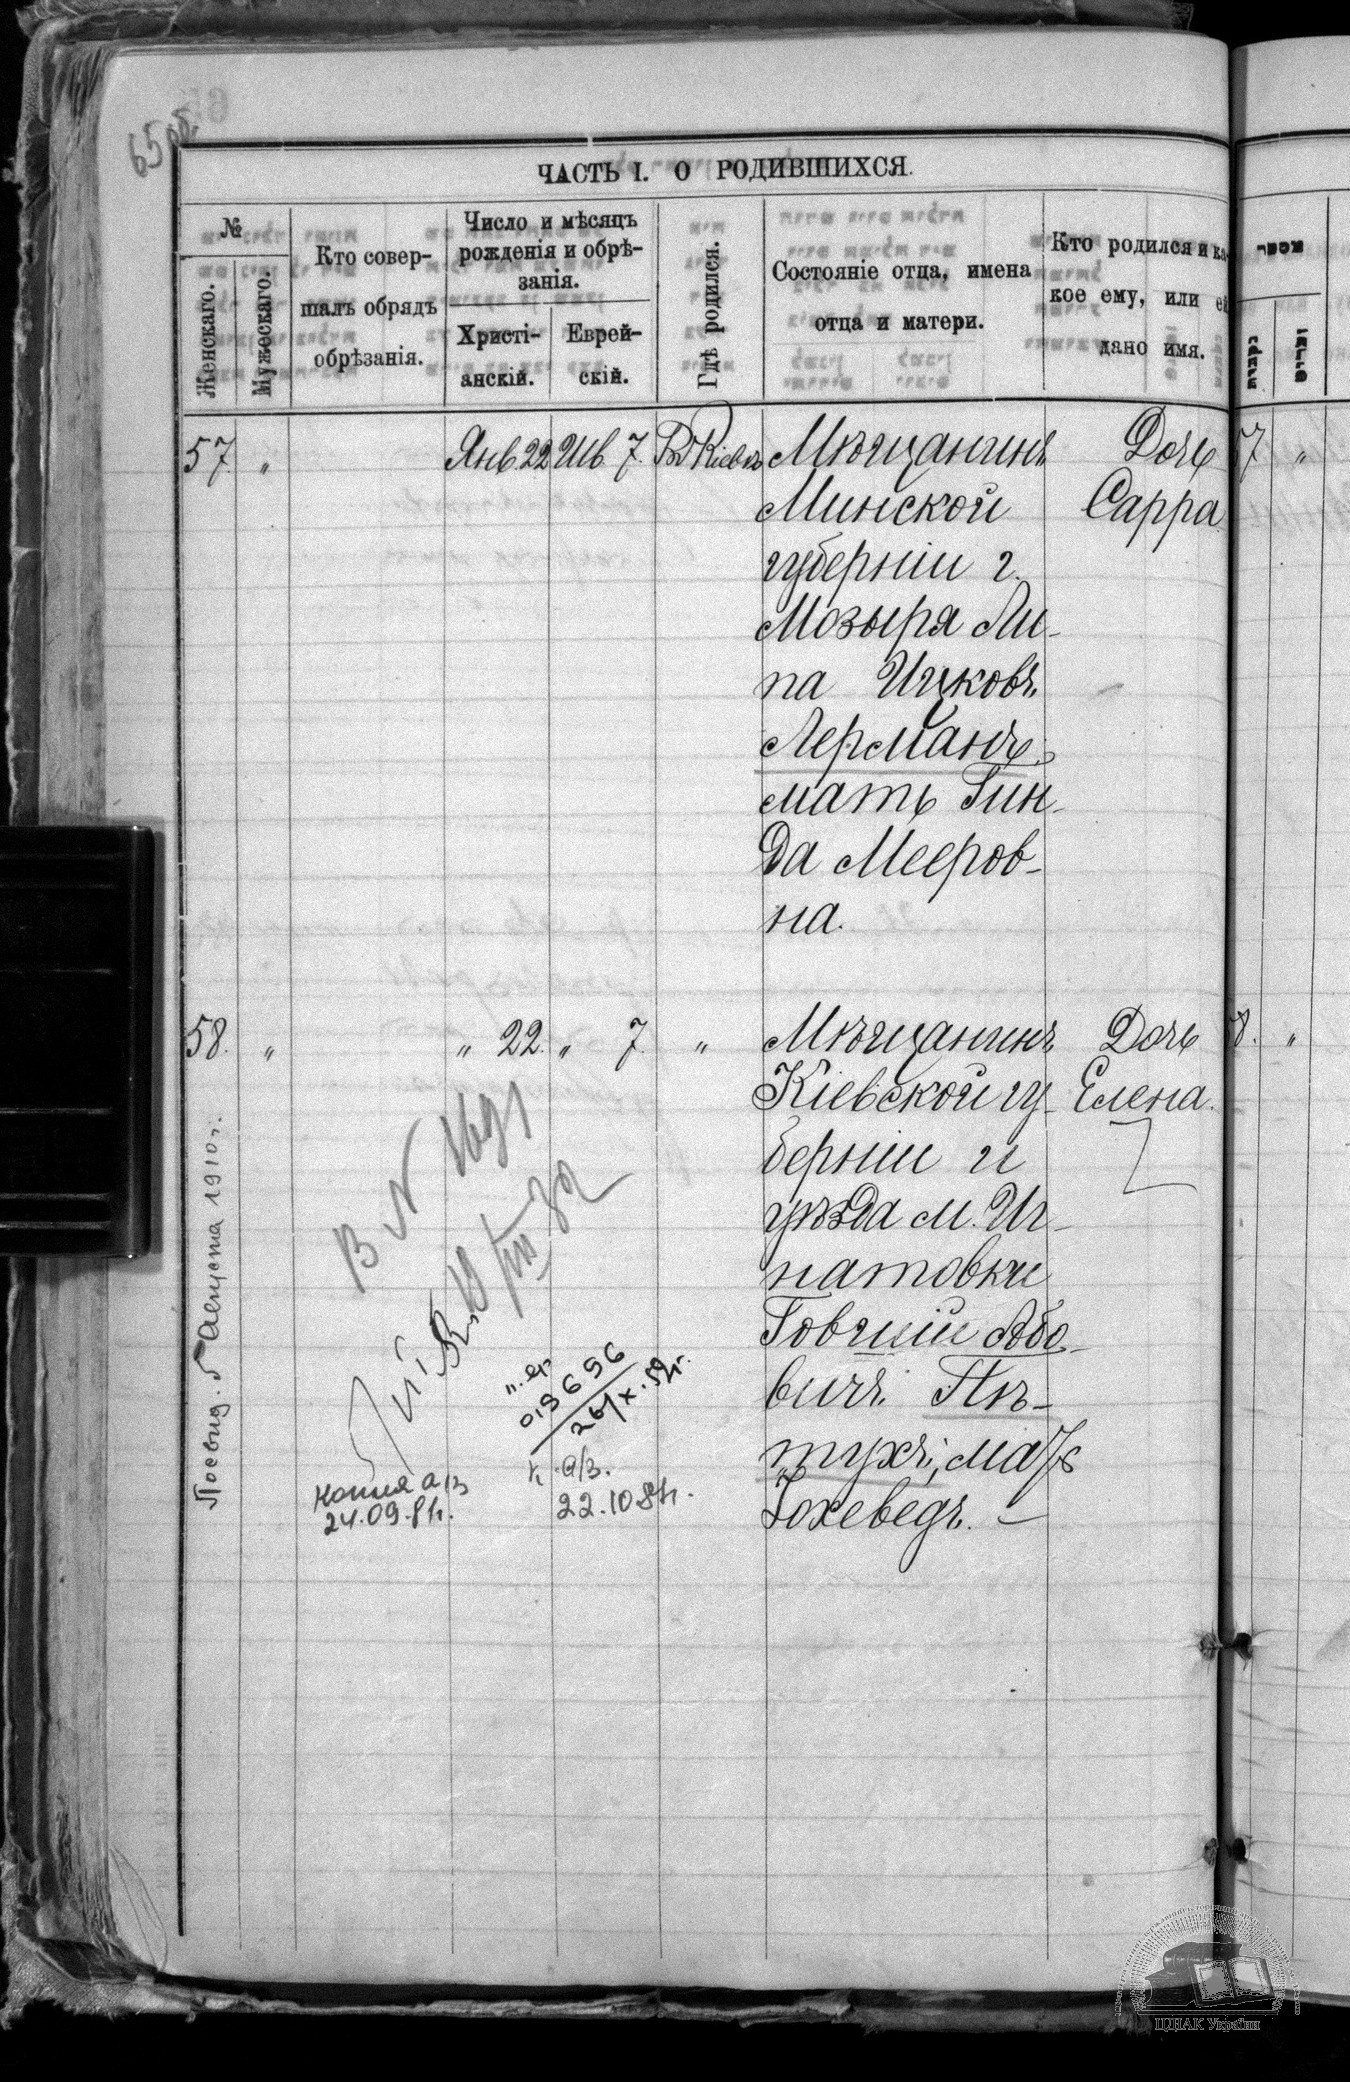 65 об.
ЧАСТЬ I. О РОДИВШИХСЯ.
№
Женскаго.
Мужескаго.
Кто совер-
шалъ обрядъ
обрѣзанія.
Число и мѣсяцъ
рожденія и обрѣ-
занія.
Христі-
анскій.
Еврей-
скій.
Гдѣ родился.
Состояніе отца, имена
отца и матери.
Кто родился и ка-
кое ему, или ей
дано имя.
57. " Янв 22 Шв 7. Въ Кіевѣ Мѣщанинъ Дочь
Минской Сарра
губерніи г.
Мозыря Ли-
па Ицковъ
Лерманъ;
мать Гин-
да Мееров-
на.
58. " " 22. " 7. " Мѣщанинъ Дочь
Кіевской гу- Елена.
берніи и
уѣзда м. Иг-
натовки
Говшій Або-
вичъ Пѣ-
тухъ; мать
Іохеведъ. —
Посвид. 5 Августа 1910 г.
В №
Копия а/з
24.09.81г.
019696
26/X.59г.
к а/з.
22.10.81г.
57 "
58. "
ЦДІАК України